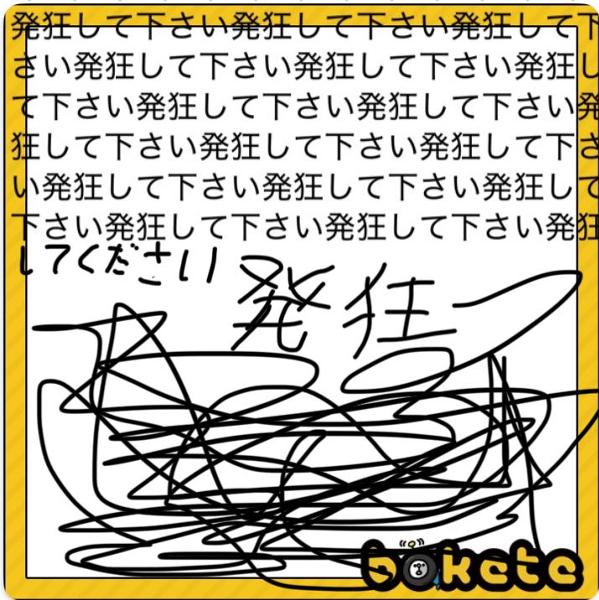 発狂して下さい発狂して下さい発狂して下
さい発狂して下さい発狂して下さい発狂し
て下さい発狂して下さい発狂して下さい発
狂して下さい発狂して下さい発狂して下さ
い発狂して下さい発狂して下さい発狂して
下さい発狂して下さい発狂して下さい発狂
してください
発狂
bokete